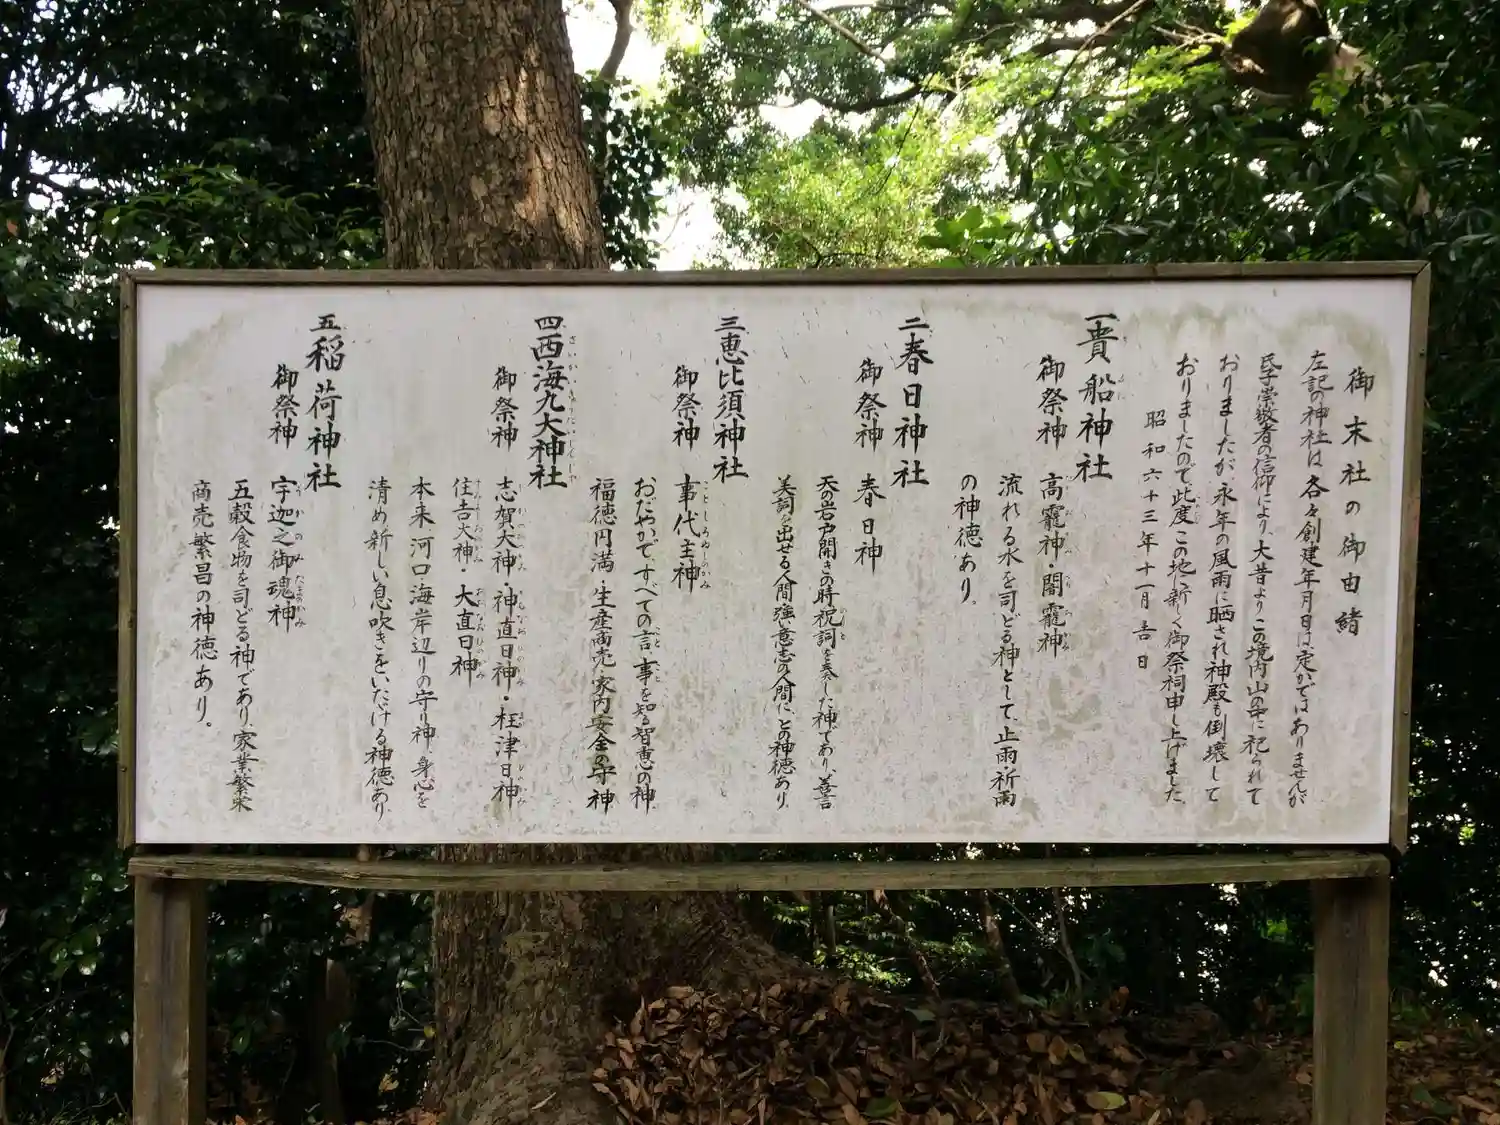 御末社の御由緒
左記の神社は各々創建年月日は定かではありませんが
氏子崇敬者の信仰により、大昔よりこの境内山の中に祀られて
おりましたが、永年の風雨に晒され神殿も倒壊して
おりましたので、此度この地に新しく御祭祠申し上げました。
昭和六十三年十一月吉日
一 貴船神社
御祭神 高龗神・闇龗神
流れる水を司どる神として、止雨・祈雨
の神徳あり。
二 春日神社
御祭神 春日神
天の岩戸開きの時祝詞を奏した神であり、善言
美詞を出せる人間強い意志の人間に、との神徳あり。
三 恵比須神社
御祭神 事代主神
おだやかで、すべての言事を知る智恵の神
福徳円満・生産商売・家内安全の守神
四 西海九大神社
御祭神 志賀大神・神直日神・枉津日神
住吉大神・大直日神
本来、河口・海岸辺りの守り神、身心を
清め新しい息吹きをいただける神徳あり
五 稲荷神社
御祭神 宇迦之御魂神
五穀食物を司どる神であり、家業繁栄
商売繁昌の神徳あり。